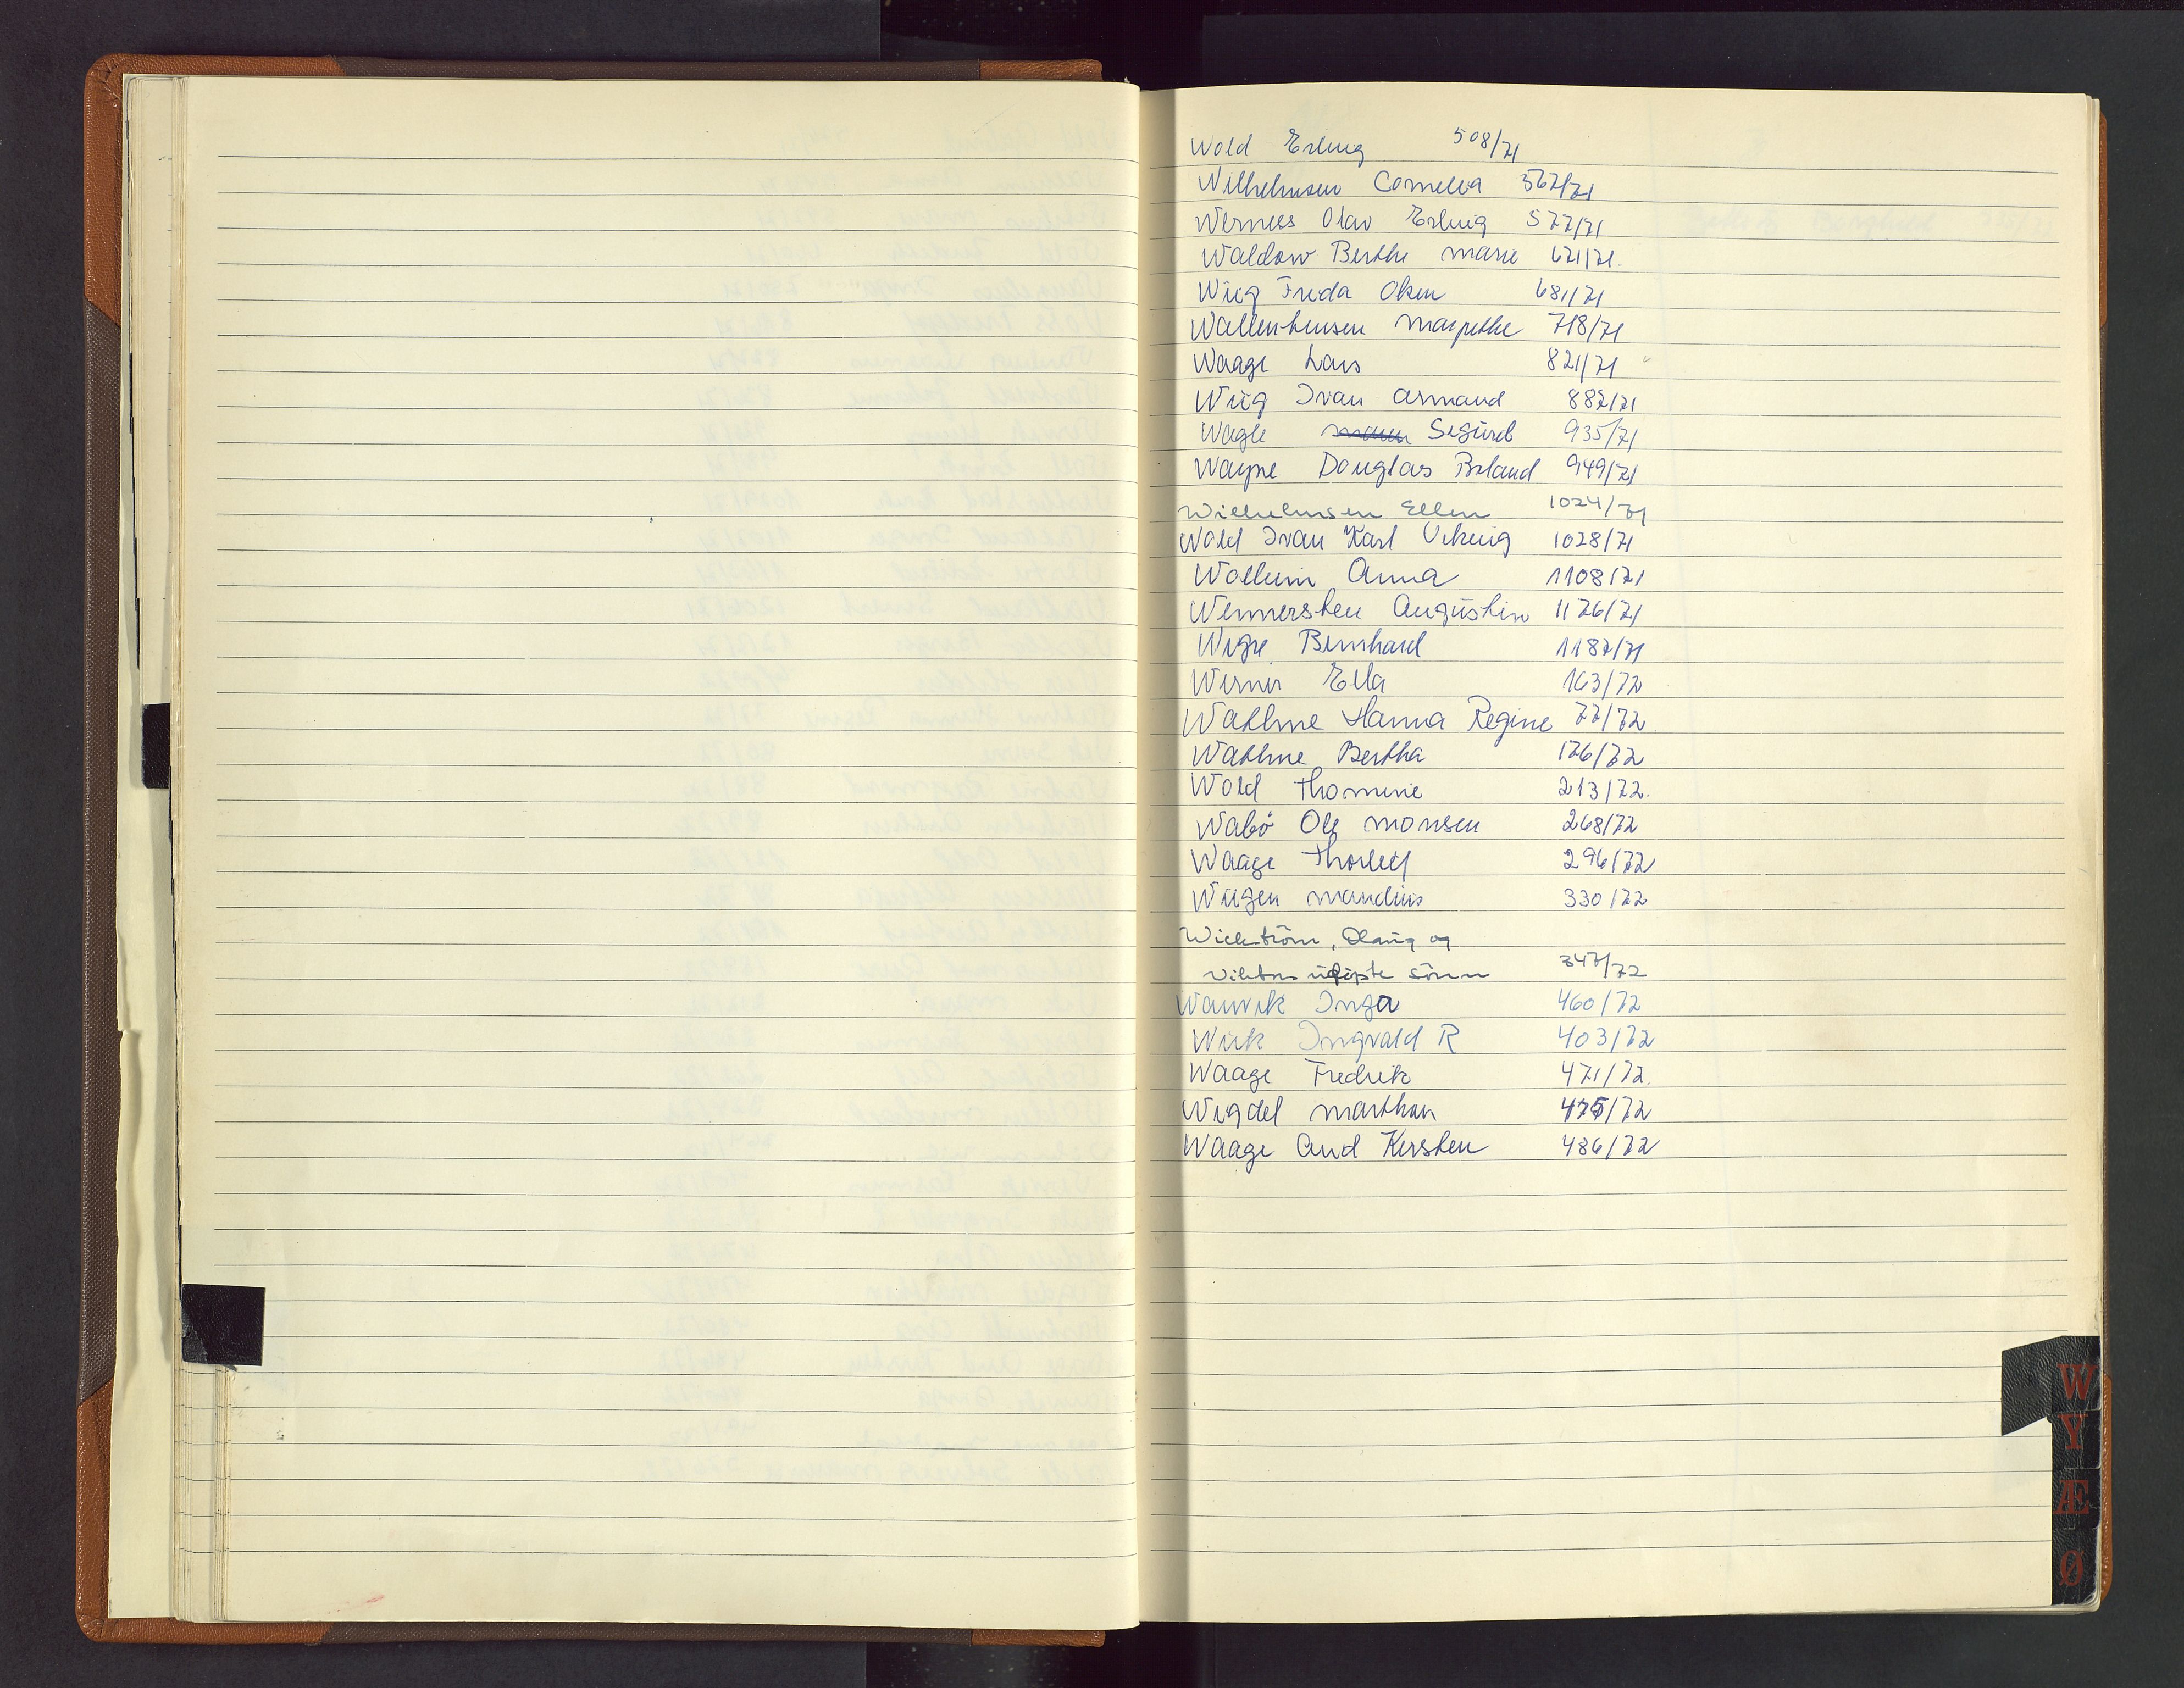 Wold Erling 508/71
Wilhelmsen Cornelia 567/71
Werness Olav Erling 577/71
Waldow Berthe marie 671/71.
Wiig Frida Olsen 681/71
Wallenhensen Margrethe 718/71
Waage Lars 821/71
Wiig Ivan Armand 882/71
Wagle Sigurd 935/71
Wayne Douglas Roland 949/71
Wilhelmsen Ellen 1024/71
Wold Ivan Karl Viking 1028/71
Wollum Anna 1108/71
Wennersten Augustin 1176/71
Wigre Bernhard 1187/71
Werner Ella 163/72
Wathne Hanna Regine 77/72
Wathne Bertha 176/72
Wold Thomine 213/72.
Wabö Ole monsen 268/72
Waage Thorleif 296/72
Wiigen mandius 330/72
Wickström, Olaug og
Viktors udöpte sönn 347/72
Warvik Inga 460/72
Wiik Ingvald R 403/72
Waage Fredrik 471/72.
Wigdel marthon 475/72
Waage Aud Kirsten 486/72
W
Y
Æ
Ø